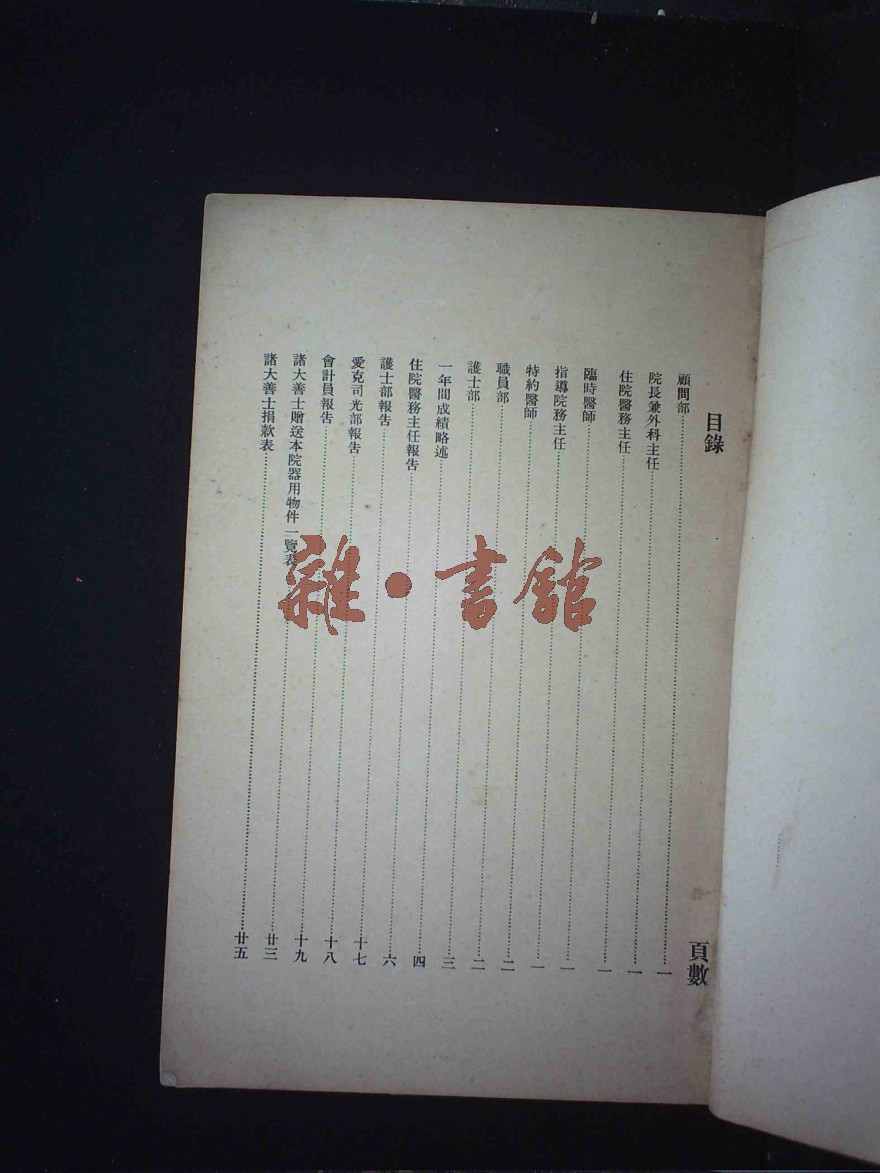 目錄 頁數
顧問部……一
院長兼外科主任……一
住院醫務主任……一
臨時醫師……一
指導院務主任……一
特約醫師……二
職員部……二
護士部……三
一年間成績略述……四
住院醫務主任報告……六
護士部報告……十七
愛克司光部報告……十八
會計員報告……十九
諸大善士贈送本院器用物件一覽表……廿三
諸大善士捐款表……廿五
雜·書館